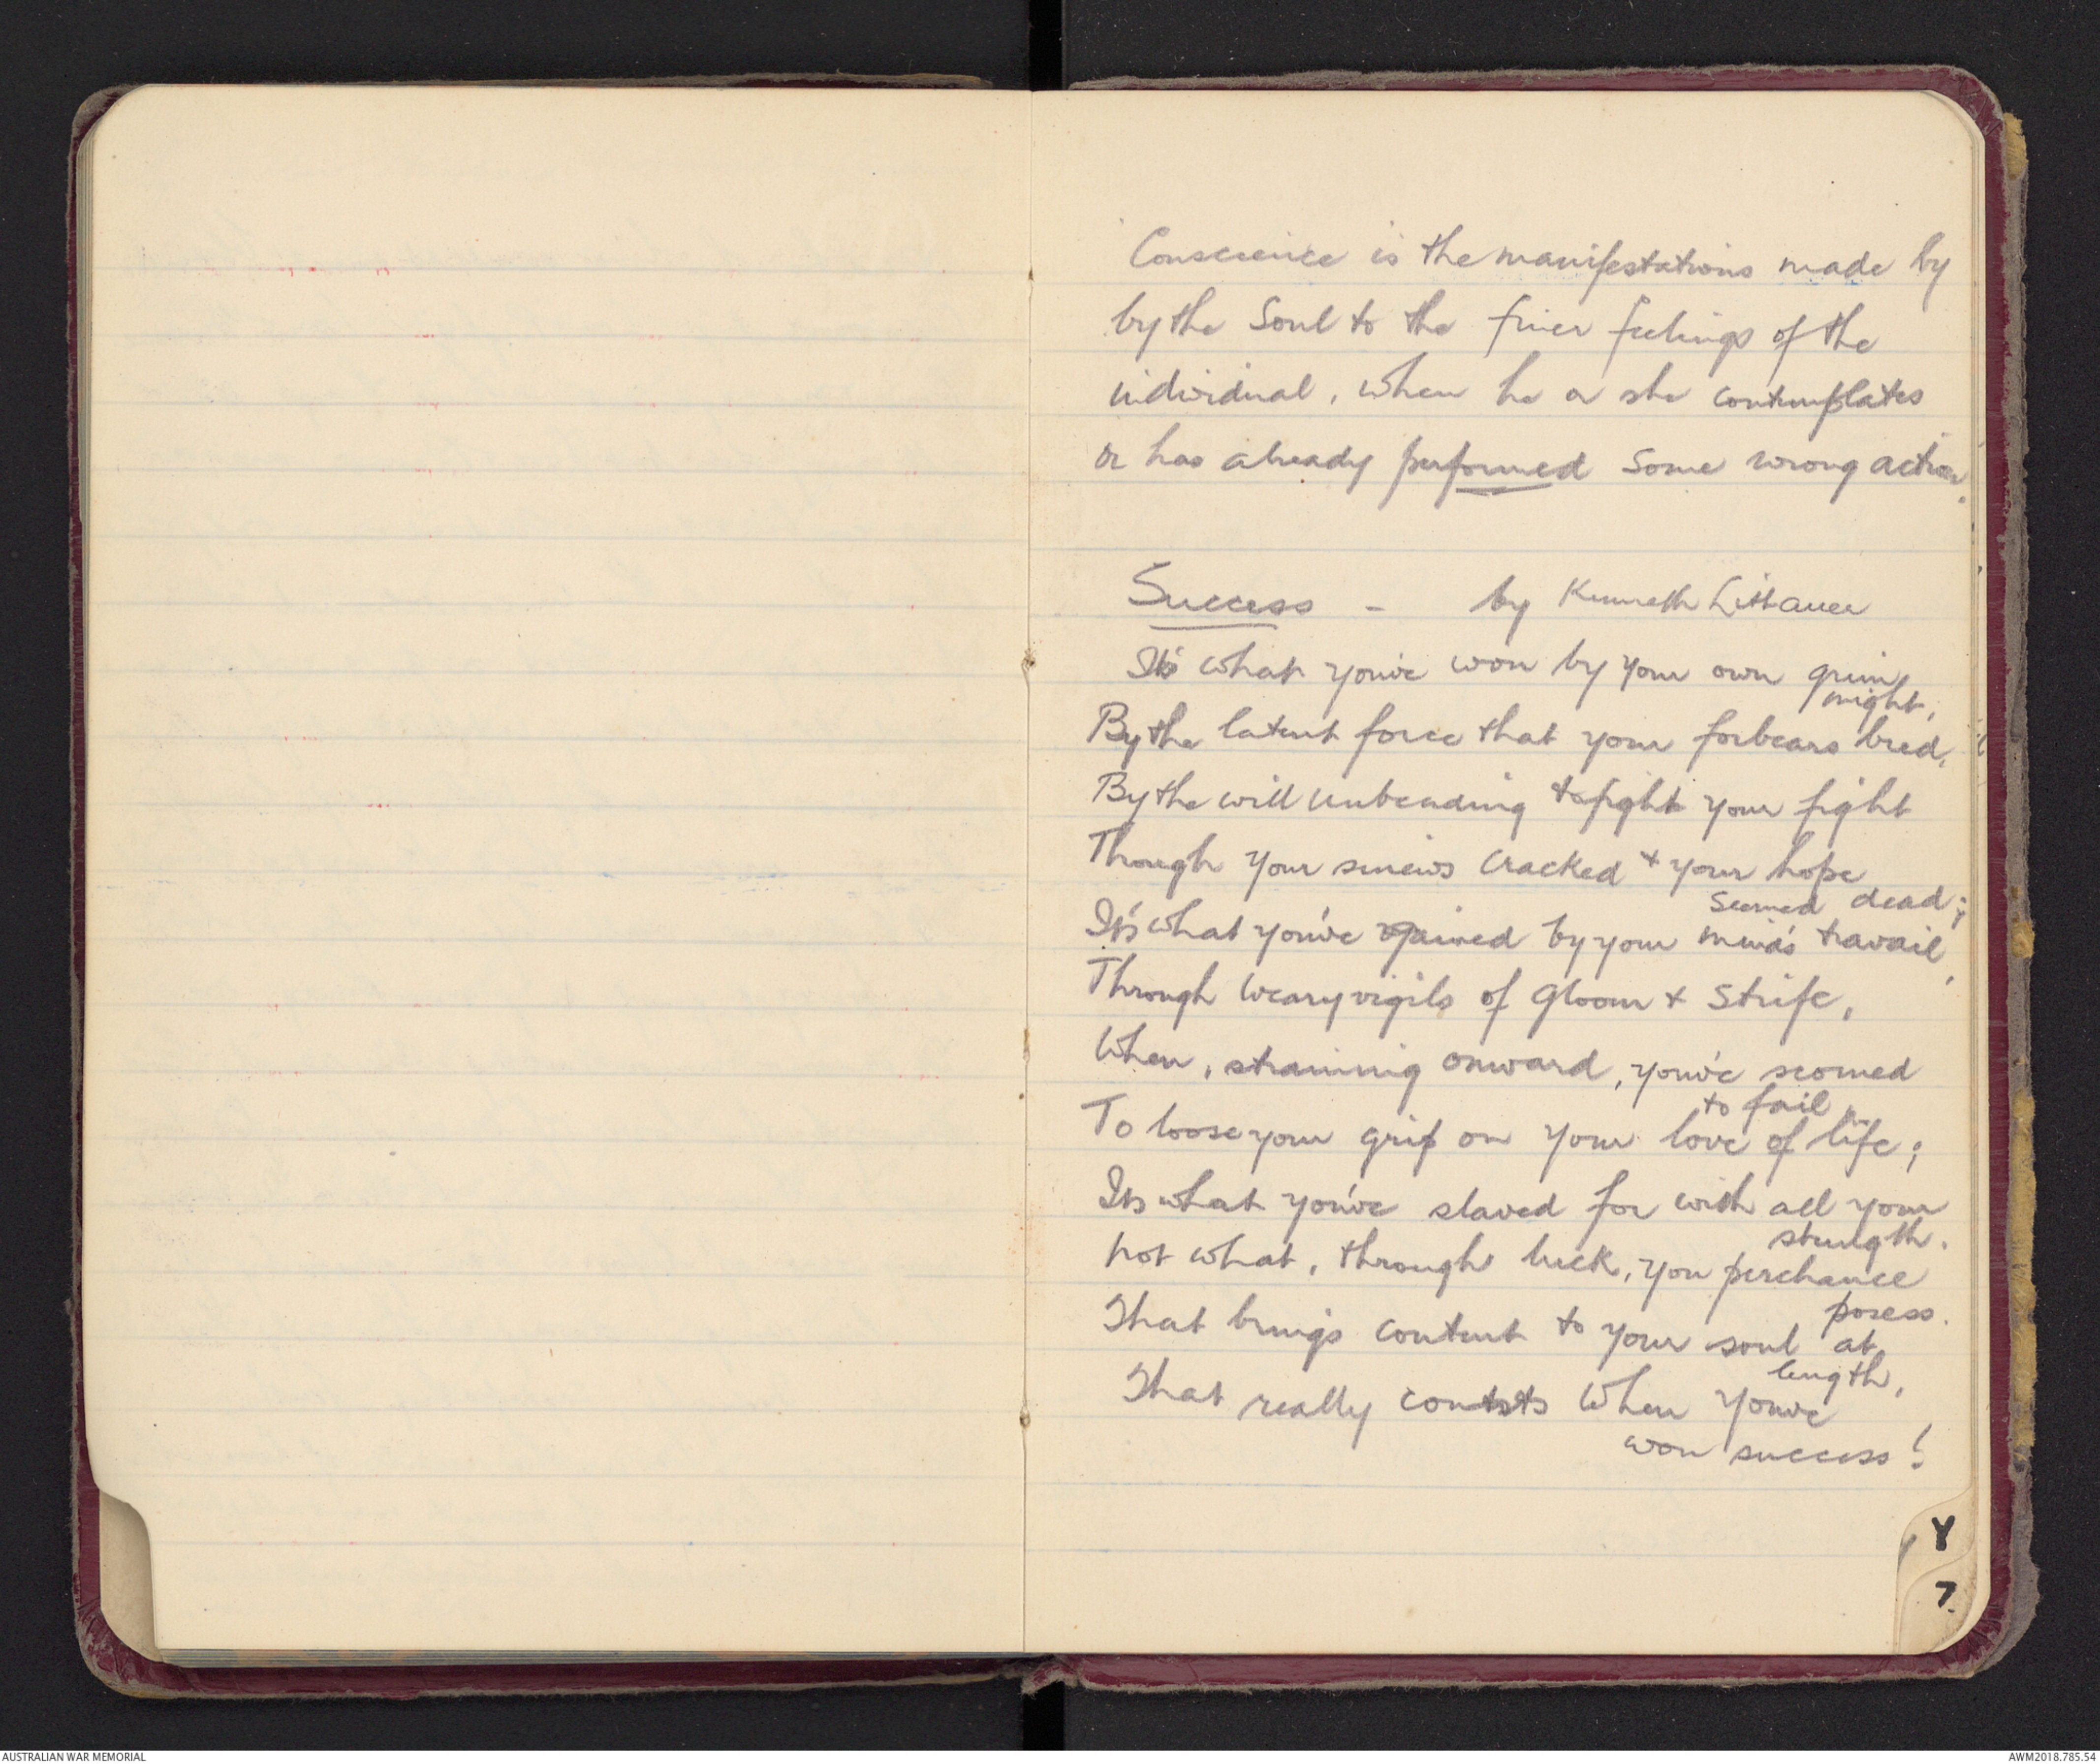 Conscience is the manifestations made by
by the Soul to the finer feelings of the
individual, when he or she contemplates
or has already performed some wrong action.
Success - by Kenneth Littauer
It's what you've won by your own grim
might,
By the latent force that your forbears bred,
By the will unbending to fight your fight
Though your sinews cracked + your hope
seemed dead;
It's what you've gained by your mind's travail,
Through weary vigils of gloom + strife,
When, straining onward, you've seemed
to fail
To loose your grip on your love of life;
Its what you've slaved for with all your
strength.
not what, through luck, you perchance
posess.
That brings content to your soul at
length,
That really counts when you've
won success!
Y
7
AUSTRALIAN WAR MEMORIAL
AWM2018.785.54